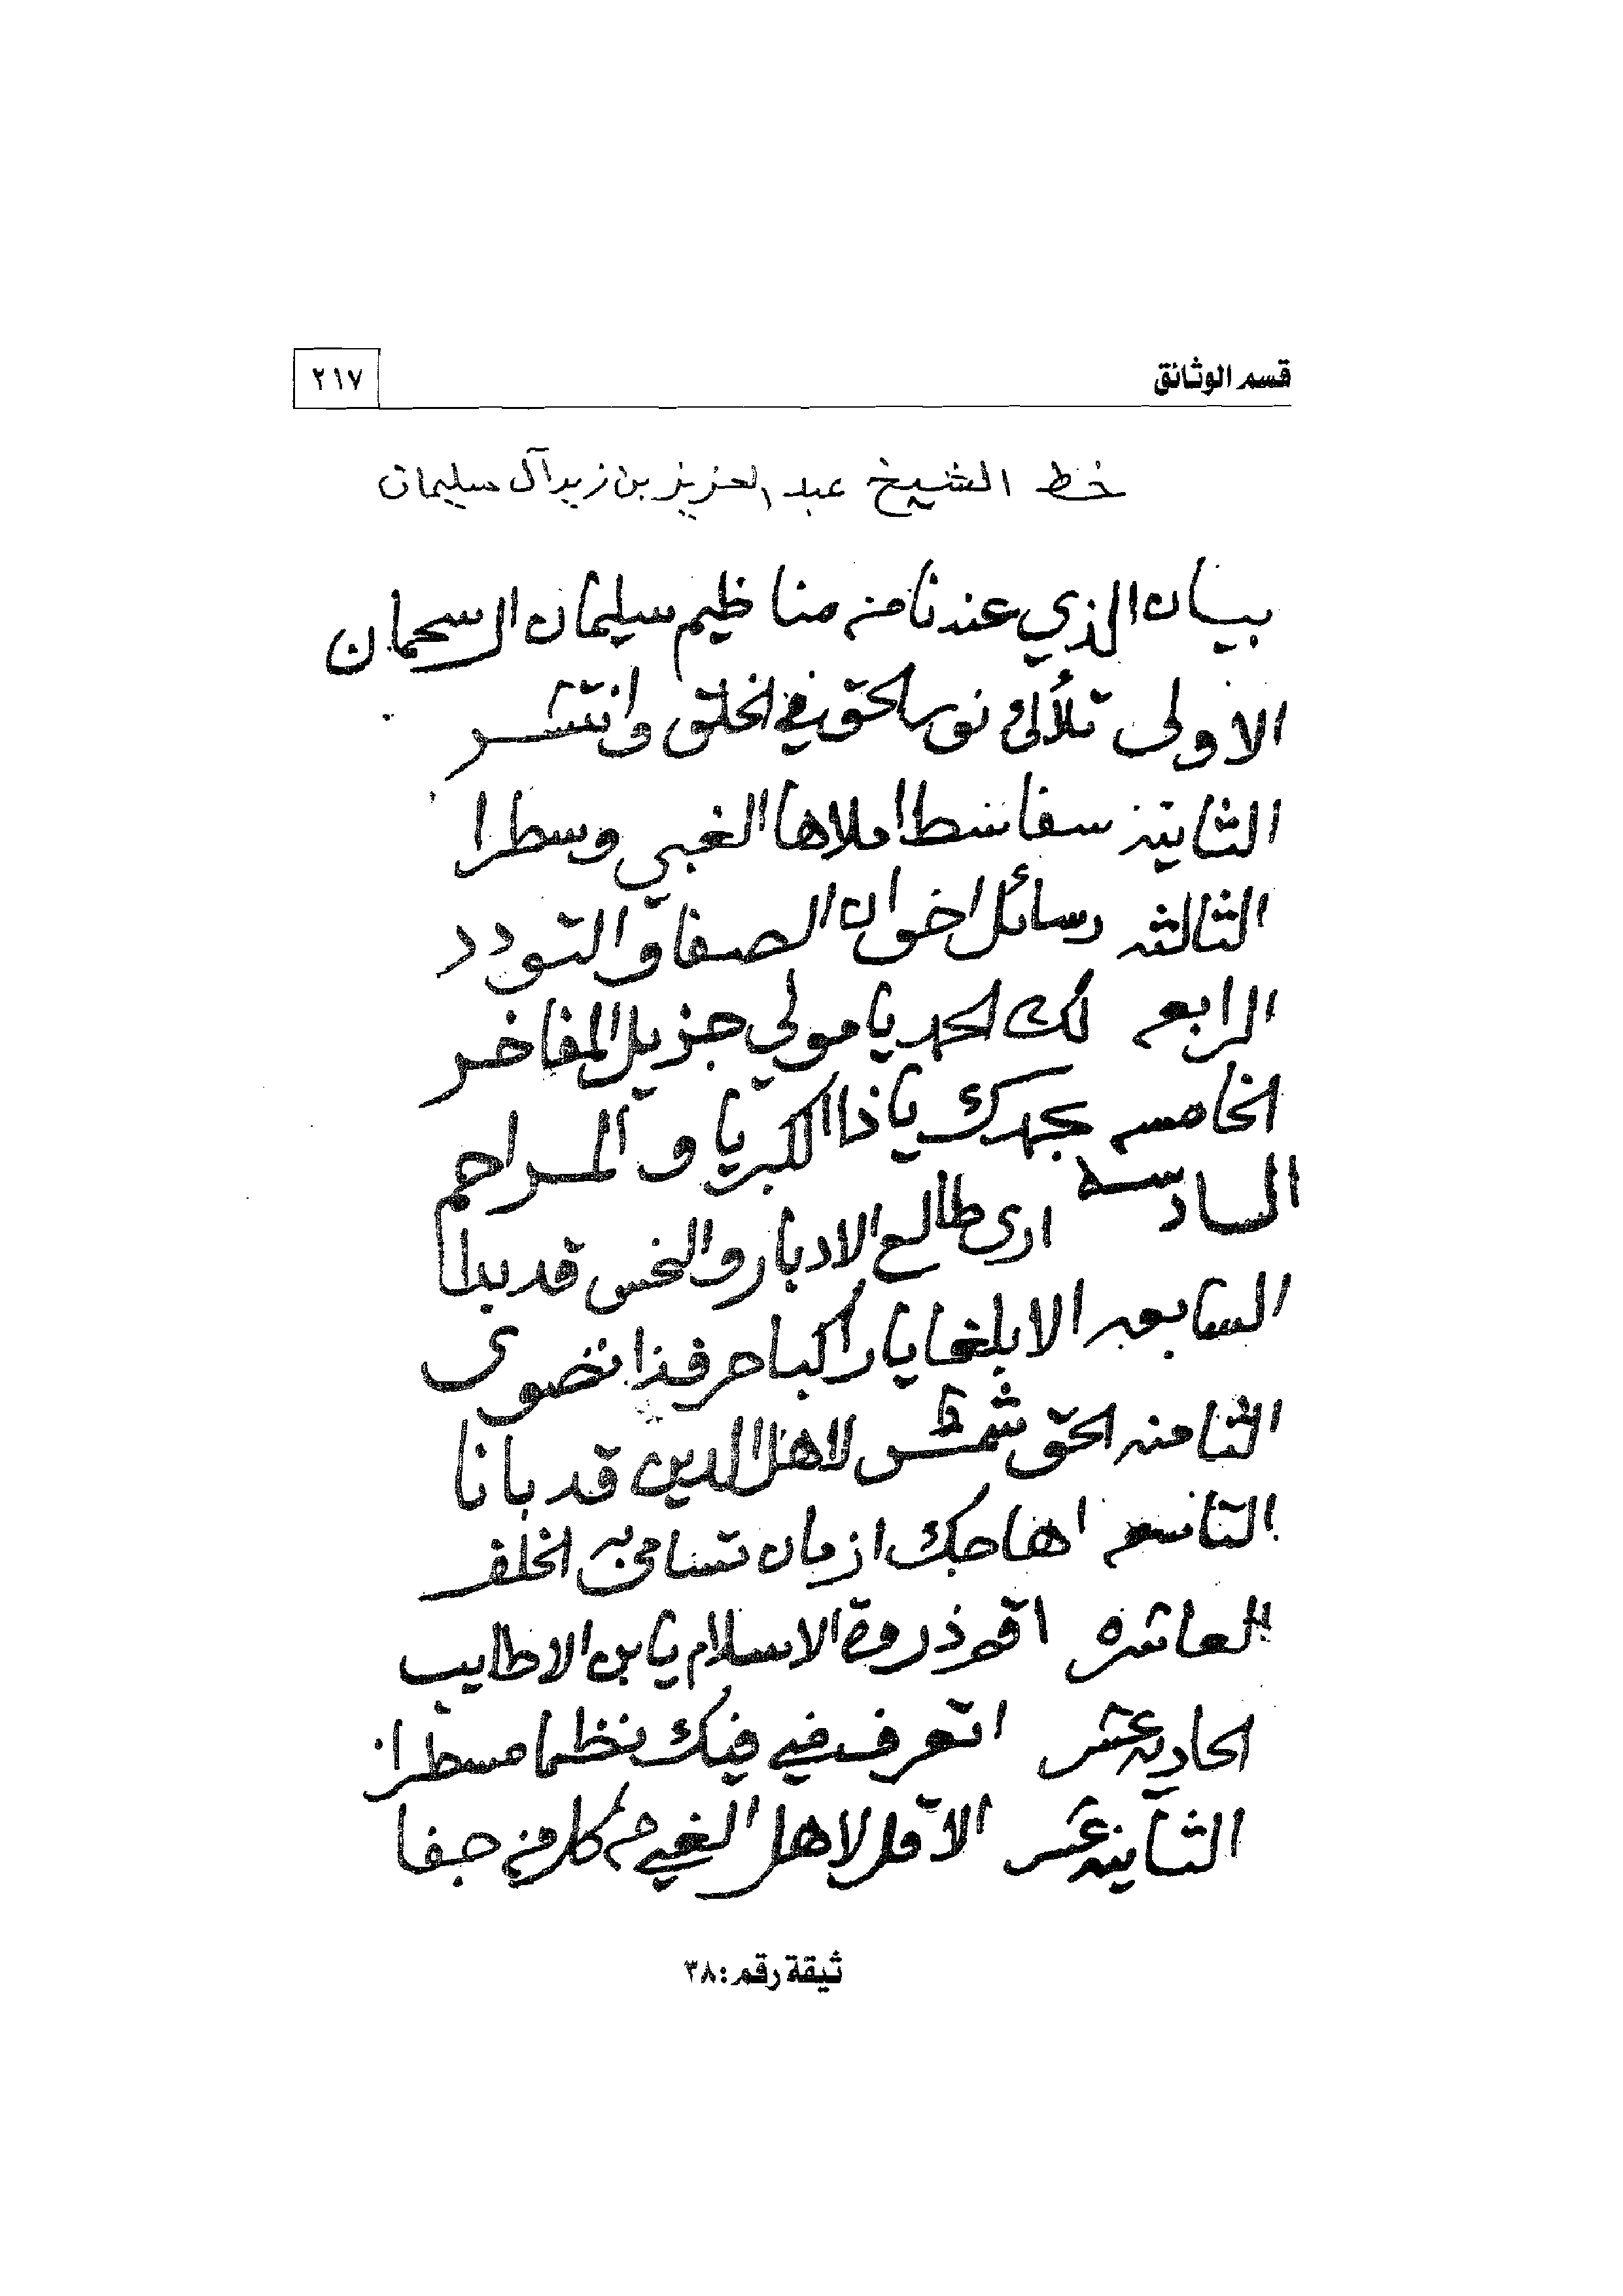 قسم الوثائق
٢١٧
خط الشيخ عبد العزيز بن زيد آل سليمان
بيان الذي عندنا من مناظيم سليمان السحمان
الاولى تلألأ نور الحق في الخلق وانتشر
الثانية سفاسط املاها الغبي وسطرا
الثالثه رسائل اخوان الصفا والتودد
الرابعه لك الحمد يا مولي جزيل المفاخر
الخامسه بحمدك ياذا الكبريا والمراحم
السادسه ارى طالع الادبار والنحس قد بدا
السابعه الا بلغا يا راكبا حرفذا نضوى
الثامنه الحق شمس لاهل الدين قد بانا
التاسعه اهاجك ازمان تسامى به الخلف
العاشره اقم ذروة الاسلام يا بن الاطايب
الحادية عشر اتعرف في فيك نظما مسطرا
الثانية عشر الا قل لاهل الغي من كل من جفا
ثيقة رقم: ٣٨